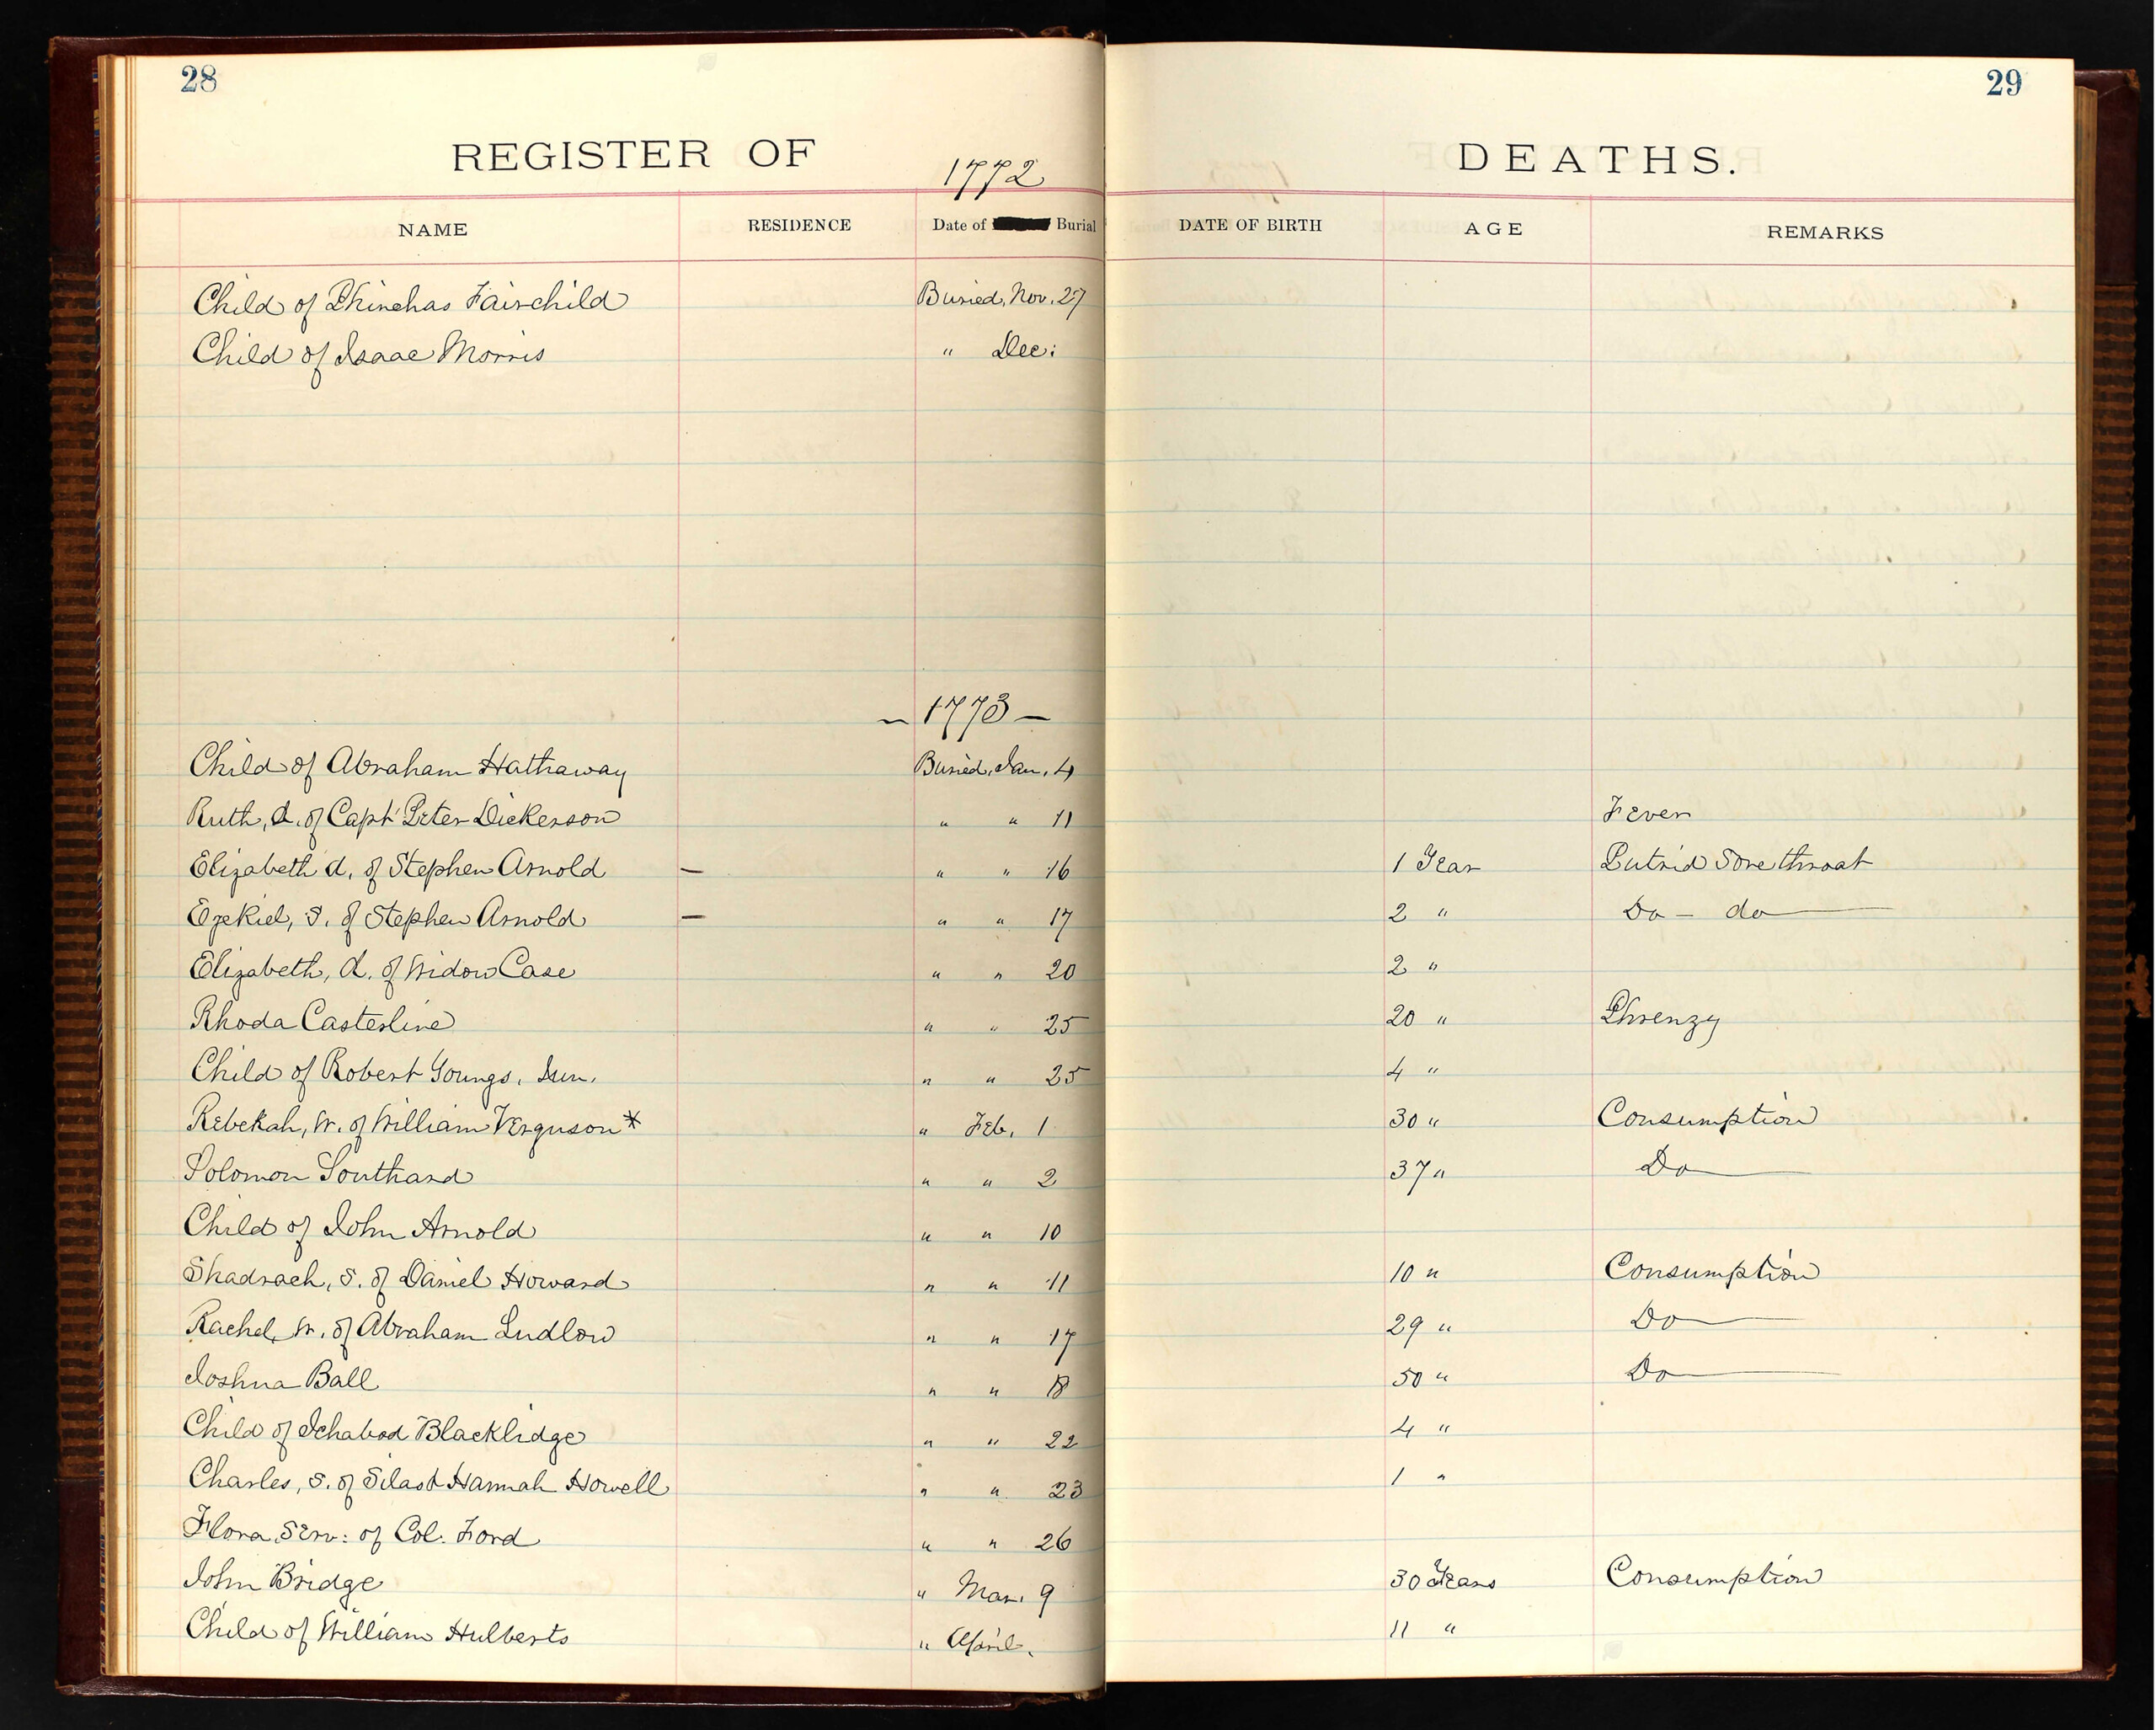 28
29
REGISTER OF
DEATHS.
1772
NAME RESIDENCE Date of Burial DATE OF BIRTH AGE REMARKS
Child of Phinehas Fairchild Buried, Nov. 27
Child of Isaac Morris " Dec:
— 1773 —
Child of Abraham Hathaway Buried, Jan. 4
Ruth, d. of Capt Peter Dickerson " " 11 Fever
Elizabeth d. of Stephen Arnold — " " 16 1 Year Putrid Sore throat
Ezekiel, S. of Stephen Arnold — " " 17 2 " Do — do
Elizabeth, d. of Widow Case " " 20 2 "
Rhoda Casterline " " 25 20 " Phrenzy
Child of Robert Youngs, Jun. " " 25 4 "
Rebekah, W. of William Verguson* " Feb. 1 30 " Consumption
Solomon Southard " " 2 37 " Do
Child of John Arnold " " 10
Shadrach, S. of Daniel Howard " " 11 10 " Consumption
Rachel, W. of Abraham Ludlow " " 17 29 " Do
Joshua Ball " " 18 50 " Do
Child of Ichabod Blacklidge " " 22 4 "
Charles, S. of Silas & Hannah Howell " " 23 1 "
Flora, Serv: of Col. Ford " " 26
John Bridge " Mar. 9 30 Years Consumption
Child of William Hulberts " April. 11 "